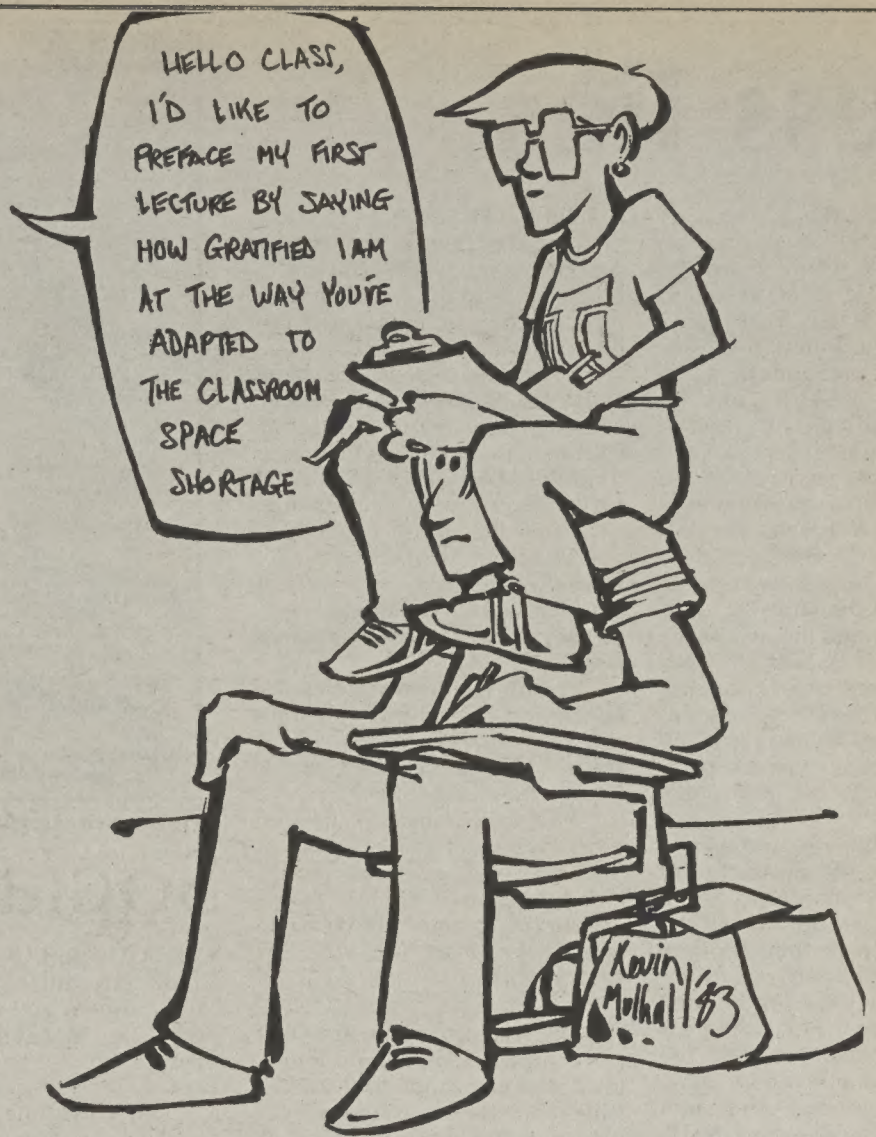 HELLO CLASS,
I'D LIKE TO
PREFACE MY FIRST
LECTURE BY SAYING
HOW GRATIFIED I AM
AT THE WAY YOU'VE
ADAPTED TO
THE CLASSROOM
SPACE
SHORTAGE
Kevin
Mulhall '83